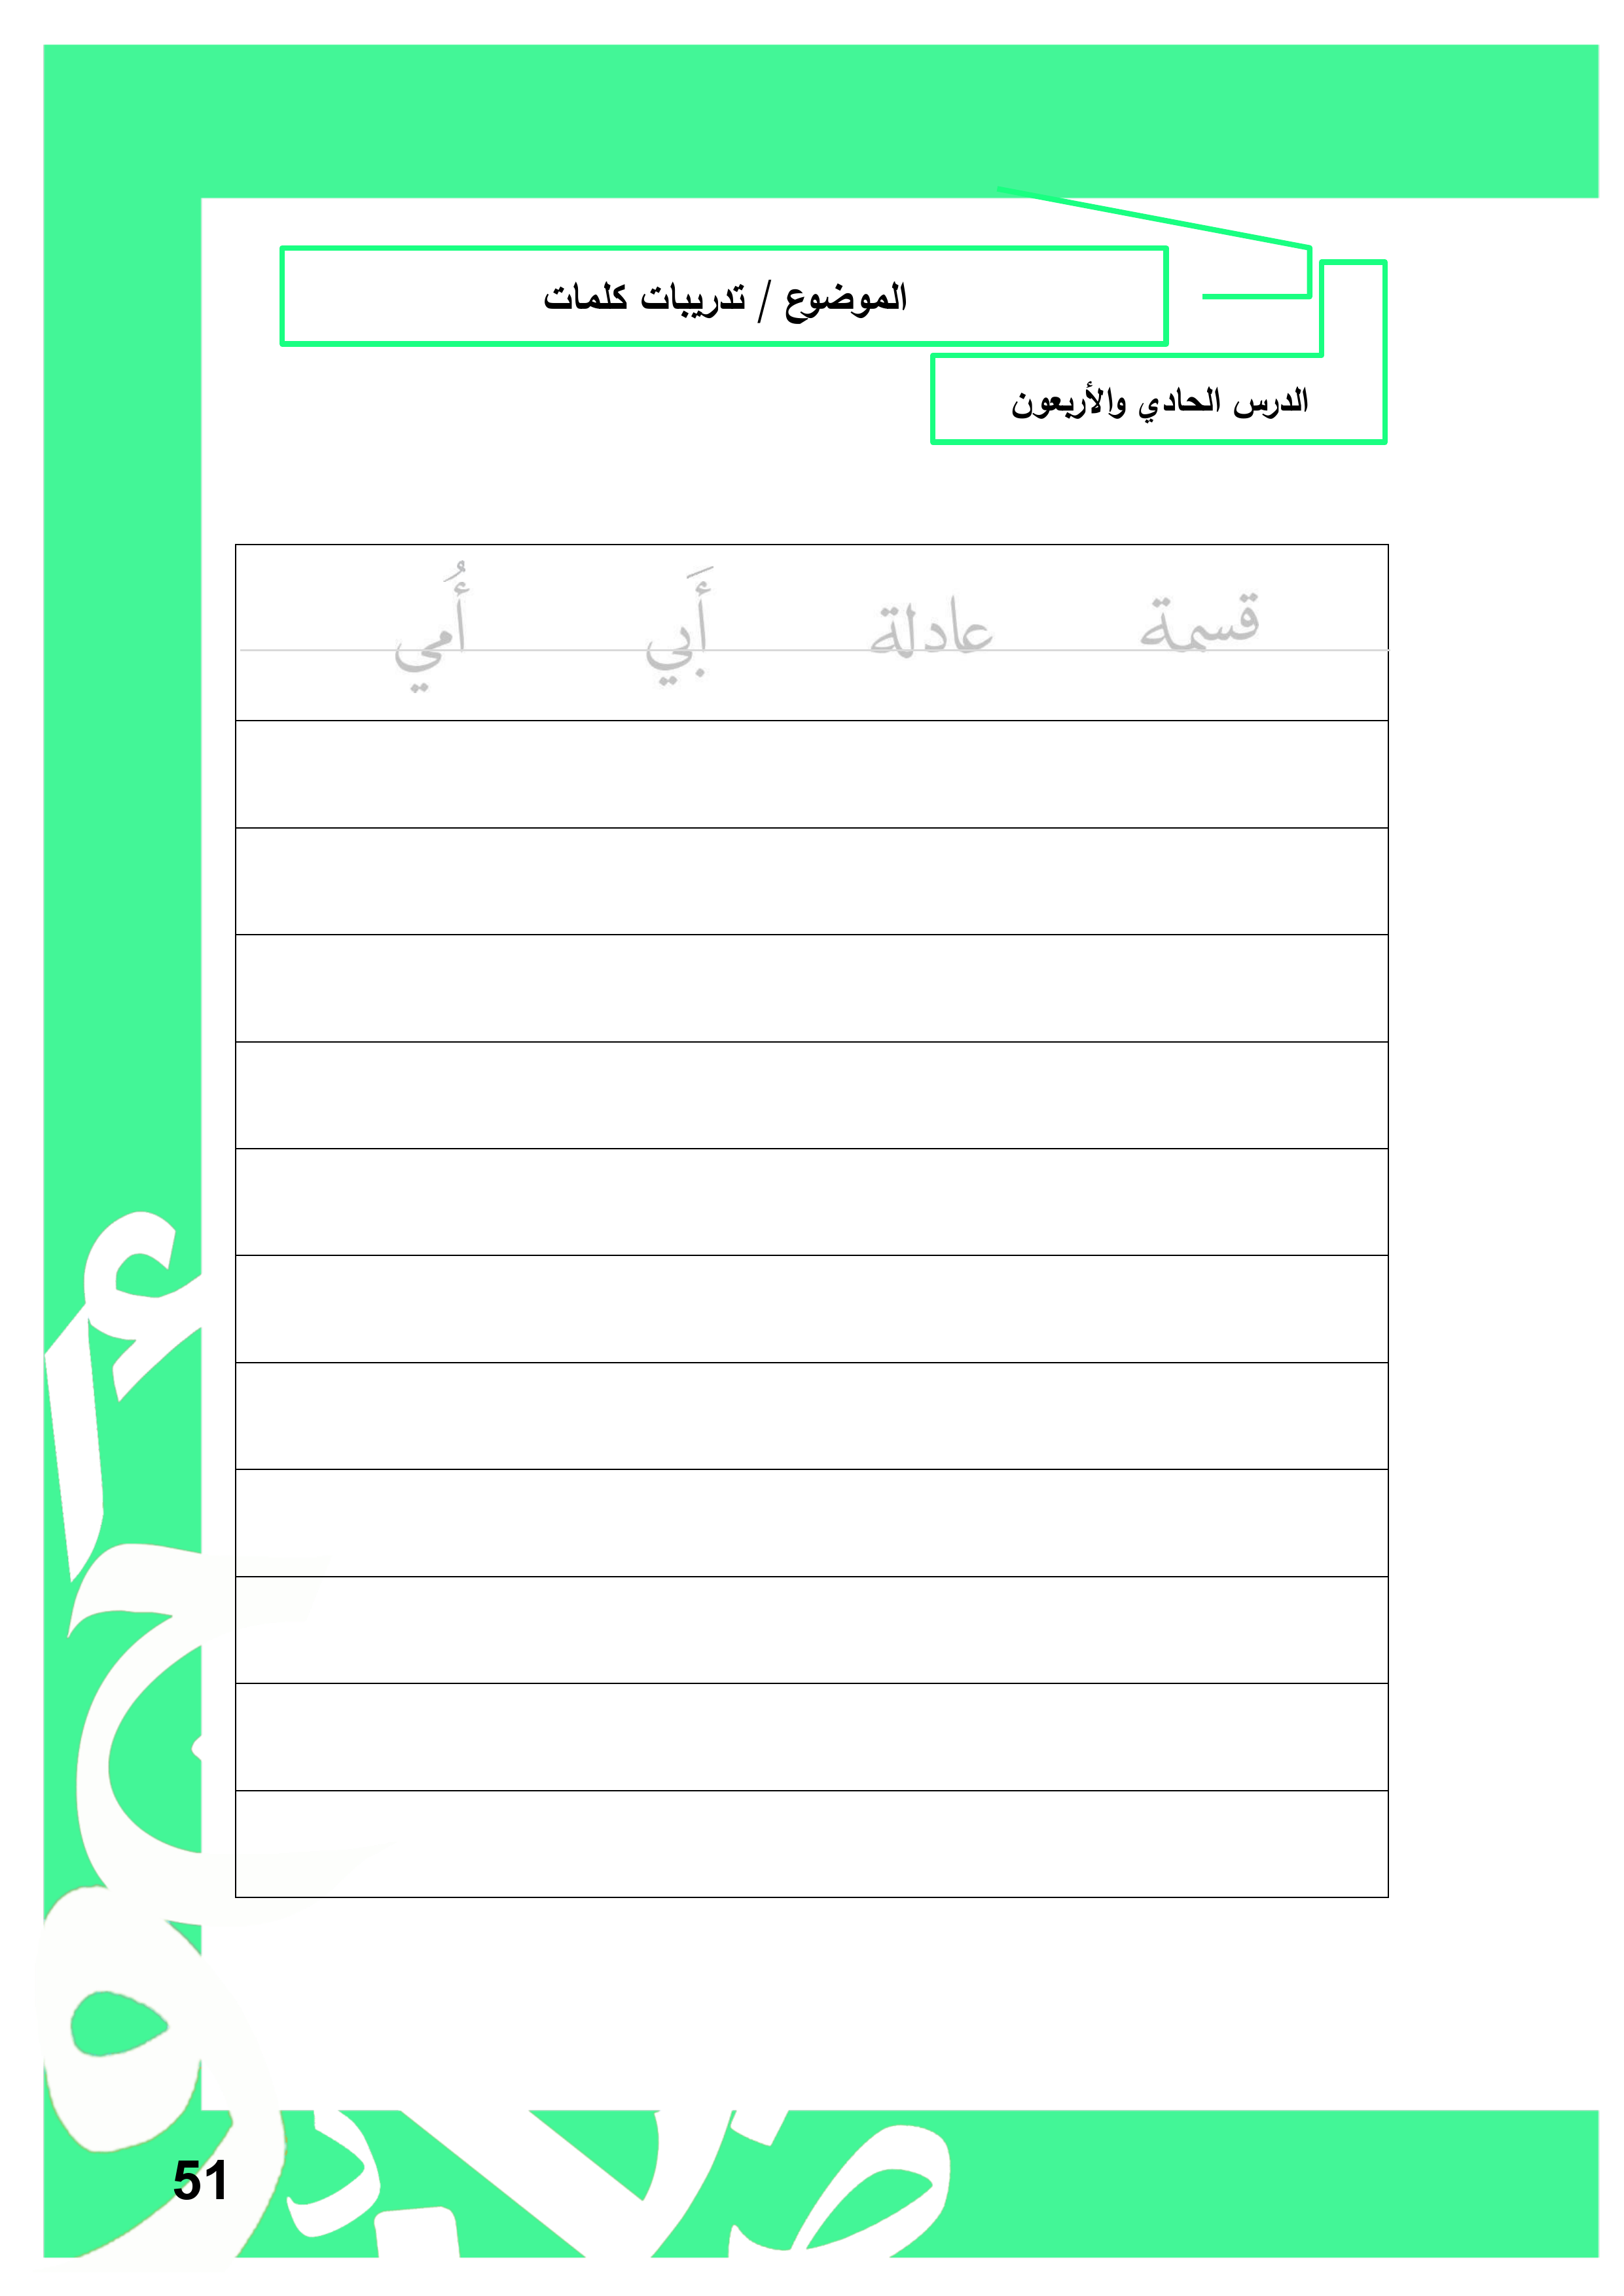 الموضوع / تدريبات كلمات
الدرس الحادي والأربعون
قسمة عادلة أَبي أُمي
51